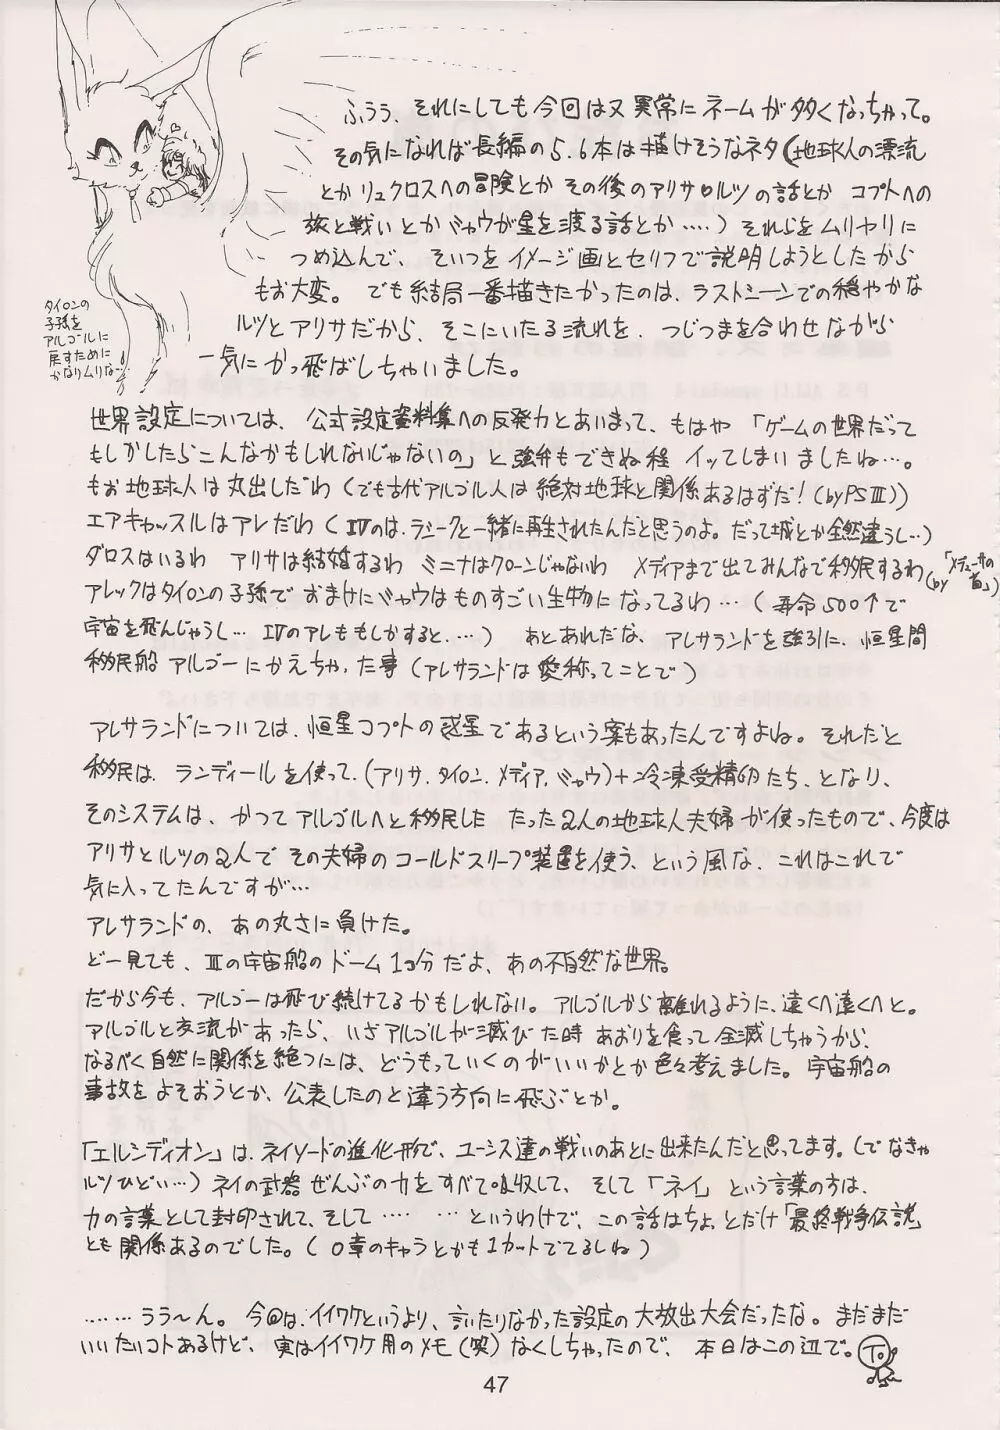 ふうぅ、それにしても今回は又異常にネームが多くなっちゃって。
その気になれば長編の5.6本は描けそうなネタ(地球人の漂流
とかリュクロスへの冒険とかその後のアリサ・ルツの話とか コプトへの
旅と戦いとかミャウが星を渡る話とか……)それらをムリヤリに
つめ込んで、そいつをイメージ画とセリフで説明しようとしたから
もお大変。でも結局一番描きたかったのは、ラストシーンでの穏やかな
ルツとアリサだから、そこにいたる流れを、つじつまを合わせながら
一気にかっ飛ばしちゃいました。
タイロンの
子孫を
アルゴールに
戻すために
かなりムリな…!
世界設定については、公式設定資料集への反発力とあいまって、もはや「ゲームの世界だって
もしかしたらこんなかもしれないじゃないの」と強弁もできぬ程 イッてしまいましたね…。
もお地球人は丸出しだわ(でも古代アルゴル人は絶対地球と関係あるはずだ!(byPSⅢ))
エアキャッスルはアレだわ(Ⅳのは、ラシークと一緒に再生されたんだと思うのよ。だって城とか全然違うし…)
ダロスはいるわ アリサは結婚するわ ミニナはクローンじゃないわ メディアまで出てみんなで移民するわ(by「メデューサの首」)
アレックはタイロンの子孫で おまけにミャウはものすごい生物になってるわ…(寿命500↑で
宇宙を飛んじゃうし… Ⅳのアレももしかすると……) あとあれだな、アレサランドを強引に、恒星間
移民船 アルゴーにかえちゃった事(アレサランドは愛称ってことで)
アレサランドについては、恒星コプトの惑星であるという案もあったんですよね。それだと
移民は、ランディールを使って、(アリサ、タイロン、メディア、ミャウ)+冷凍受精卵たち、となり、
そのシステムは、かつてアルゴルへと移民した たった2人の地球人夫婦が使ったもので、今度は
アリサとルツの2人で その夫婦のコールドスリープ装置を使う、という風な、これはこれで
気に入ってたんですが…
アレサランドの、あの丸さに負けた。
どー見ても、Ⅲの宇宙船のドーム1コ分だよ、あの不自然な世界。
だから今も、アルゴーは飛び続けてるかもしれない。アルゴルから離れるように、遠くへ遠くへと。
アルゴルと交流があったら、いざアルゴルが滅びた時 あおりを食って全滅しちゃうから、
なるべく自然に関係を絶つには、どうもっていくのがいいかとか色々考えました。宇宙船の
事故をよそおうとか、公表したのと違う方向に飛ぶとか。
「エルシディオン」は、ネイソードの進化形で、ユーシス達の戦いのあとに出来たんだと思ってます。(でなきゃ
ルツひどい…)ネイの武器ぜんぶの力をすべて吸収して、そして「ネイ」という言葉の方は、
力の言葉として封印されて、そして…… …というわけで、この話はちょっとだけ「最終戦争伝説」
とも関係あるのでした。(0章のキャラとかも1カットでてるしね)
……ううーん。今回は、イイワケというより、言いたりなかった設定の大放出大会だったな。まだまだ
いいたいコトあるけど、実はイイワケ用のメモ(笑)なくしちゃったので、本日はこの辺で。To
47